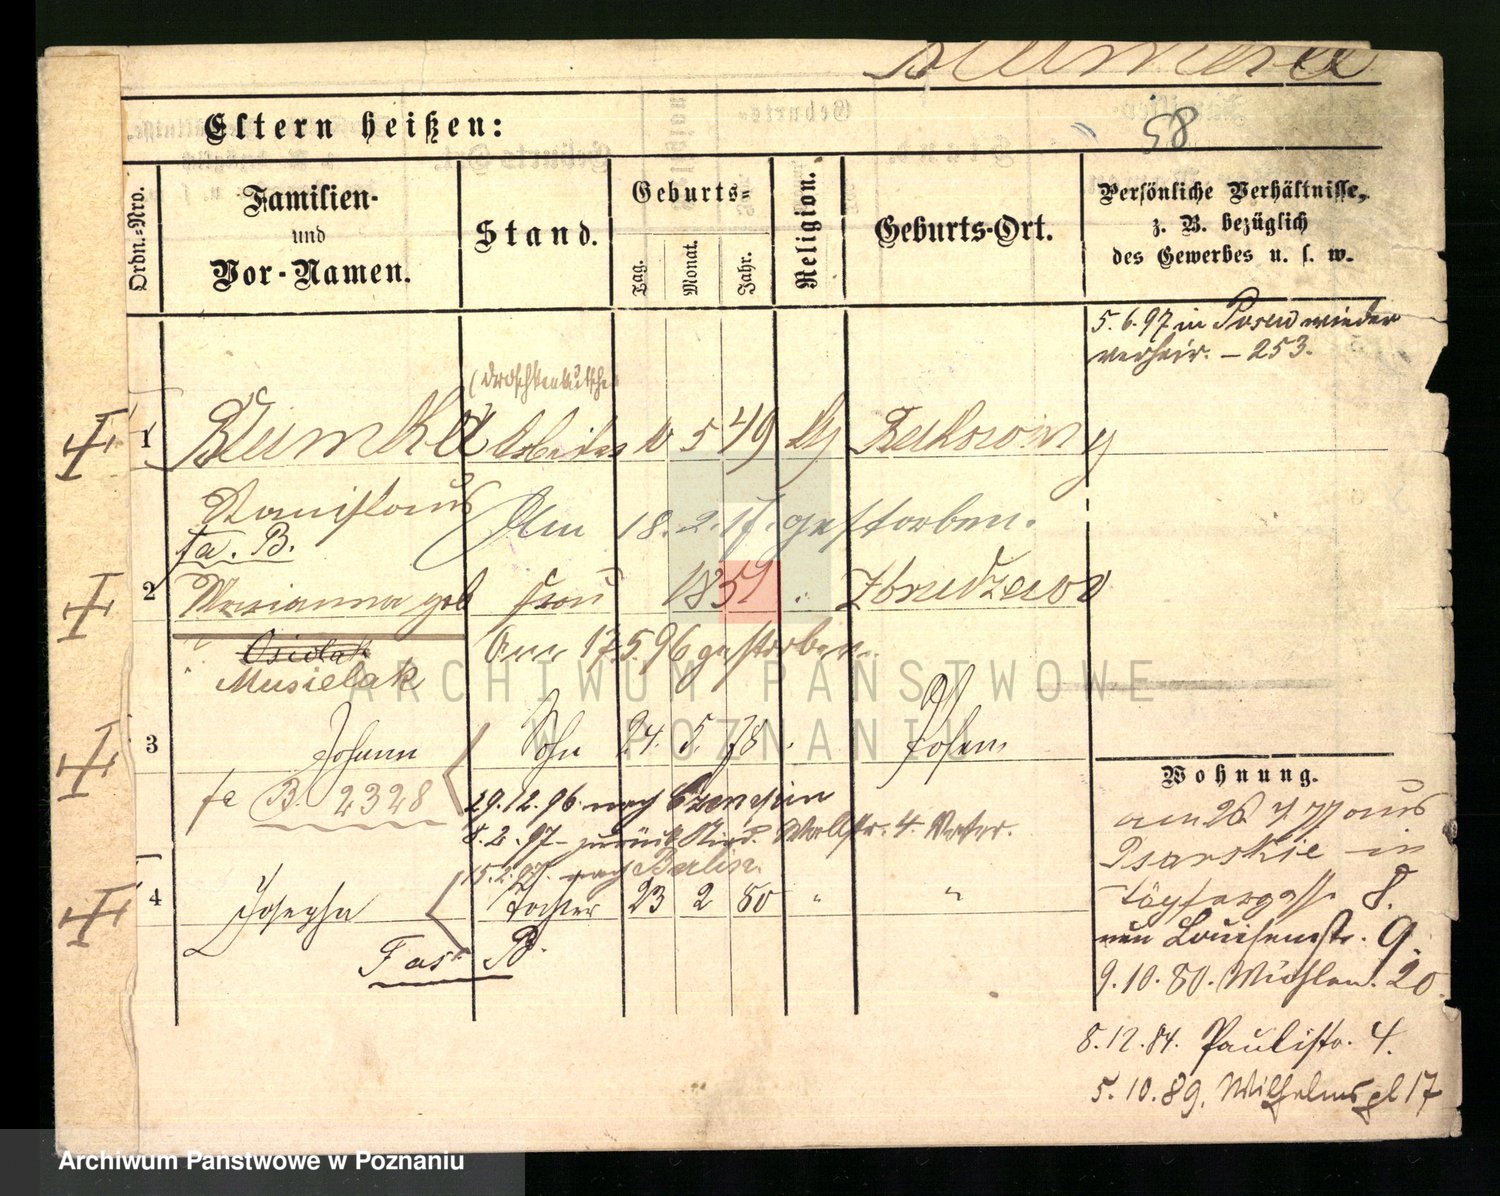 Blumka
58
Eltern heißen:
Ordn.-Nro.
Familien-
und
Vor-Namen.
Stand.
Geburts-
Tag.
Monat.
Jahr.
Religion.
Geburts-Ort.
Persönliche Verhältnisse,
z. B. bezüglich
des Gewerbes u. s. w.
5.6.97 in Posen wieder
verheir. – 253.
(Droschkenkutscher
1 Blumka Arbeiter 5 49
Stanislaus
Am 18.2.17. gestorben.
fa. B.
2 Marianna geb Frau 1851
" Osielak Am 17.5.96 gestorben.
" Musielak
3 Johann Sohn 24. 5. 78 Posen
fe B. 2328
29.12.96 nach
8.2.97 zurück Wallstr. 4. Vater.
15.2.97 nach Berlin.
4 Josepha Tochter 23 2 80 " "
Fas B.
Wohnung.
am 26 4 77 aus
Psarskie in
Töpfergasse 8.
nun Louisenstr. 9.
9.10.80. Mühlen. 20.
8.12.84. Paulistr. 4.
5.10.89. Wilhelmspl 17
ARCHIWUM PAŃSTWOWE
W POZNANIU
Archiwum Państwowe w Poznaniu